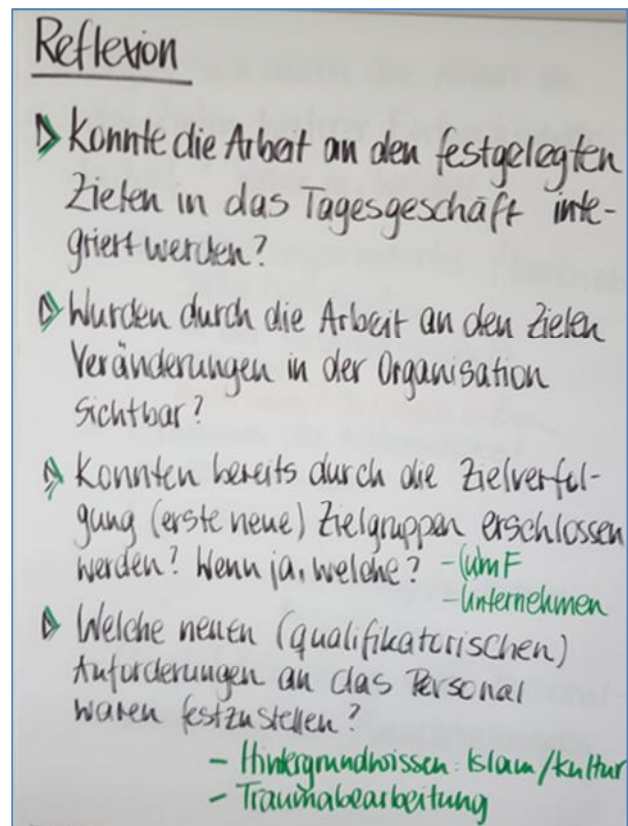 Reflexion
Konnte die Arbeit an den festgelegten
Zielen in das Tagesgeschäft inte-
griert werden?
Wurden durch die Arbeit an den Zielen
Veränderungen in der Organisation
sichtbar?
Konnten bereits durch die Zielverfol-
gung (erste neue) Zielgruppen erschlossen
werden? Wenn ja, welche? - (umF
- Unternehmen
Welche neuen (qualifikatorischen)
Anforderungen an das Personal
waren festzustellen?
- Hintergrundwissen: Islam/Kultur
- Traumabearbeitung